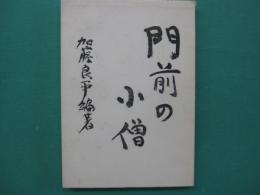 門前の
小僧
加藤良平編著